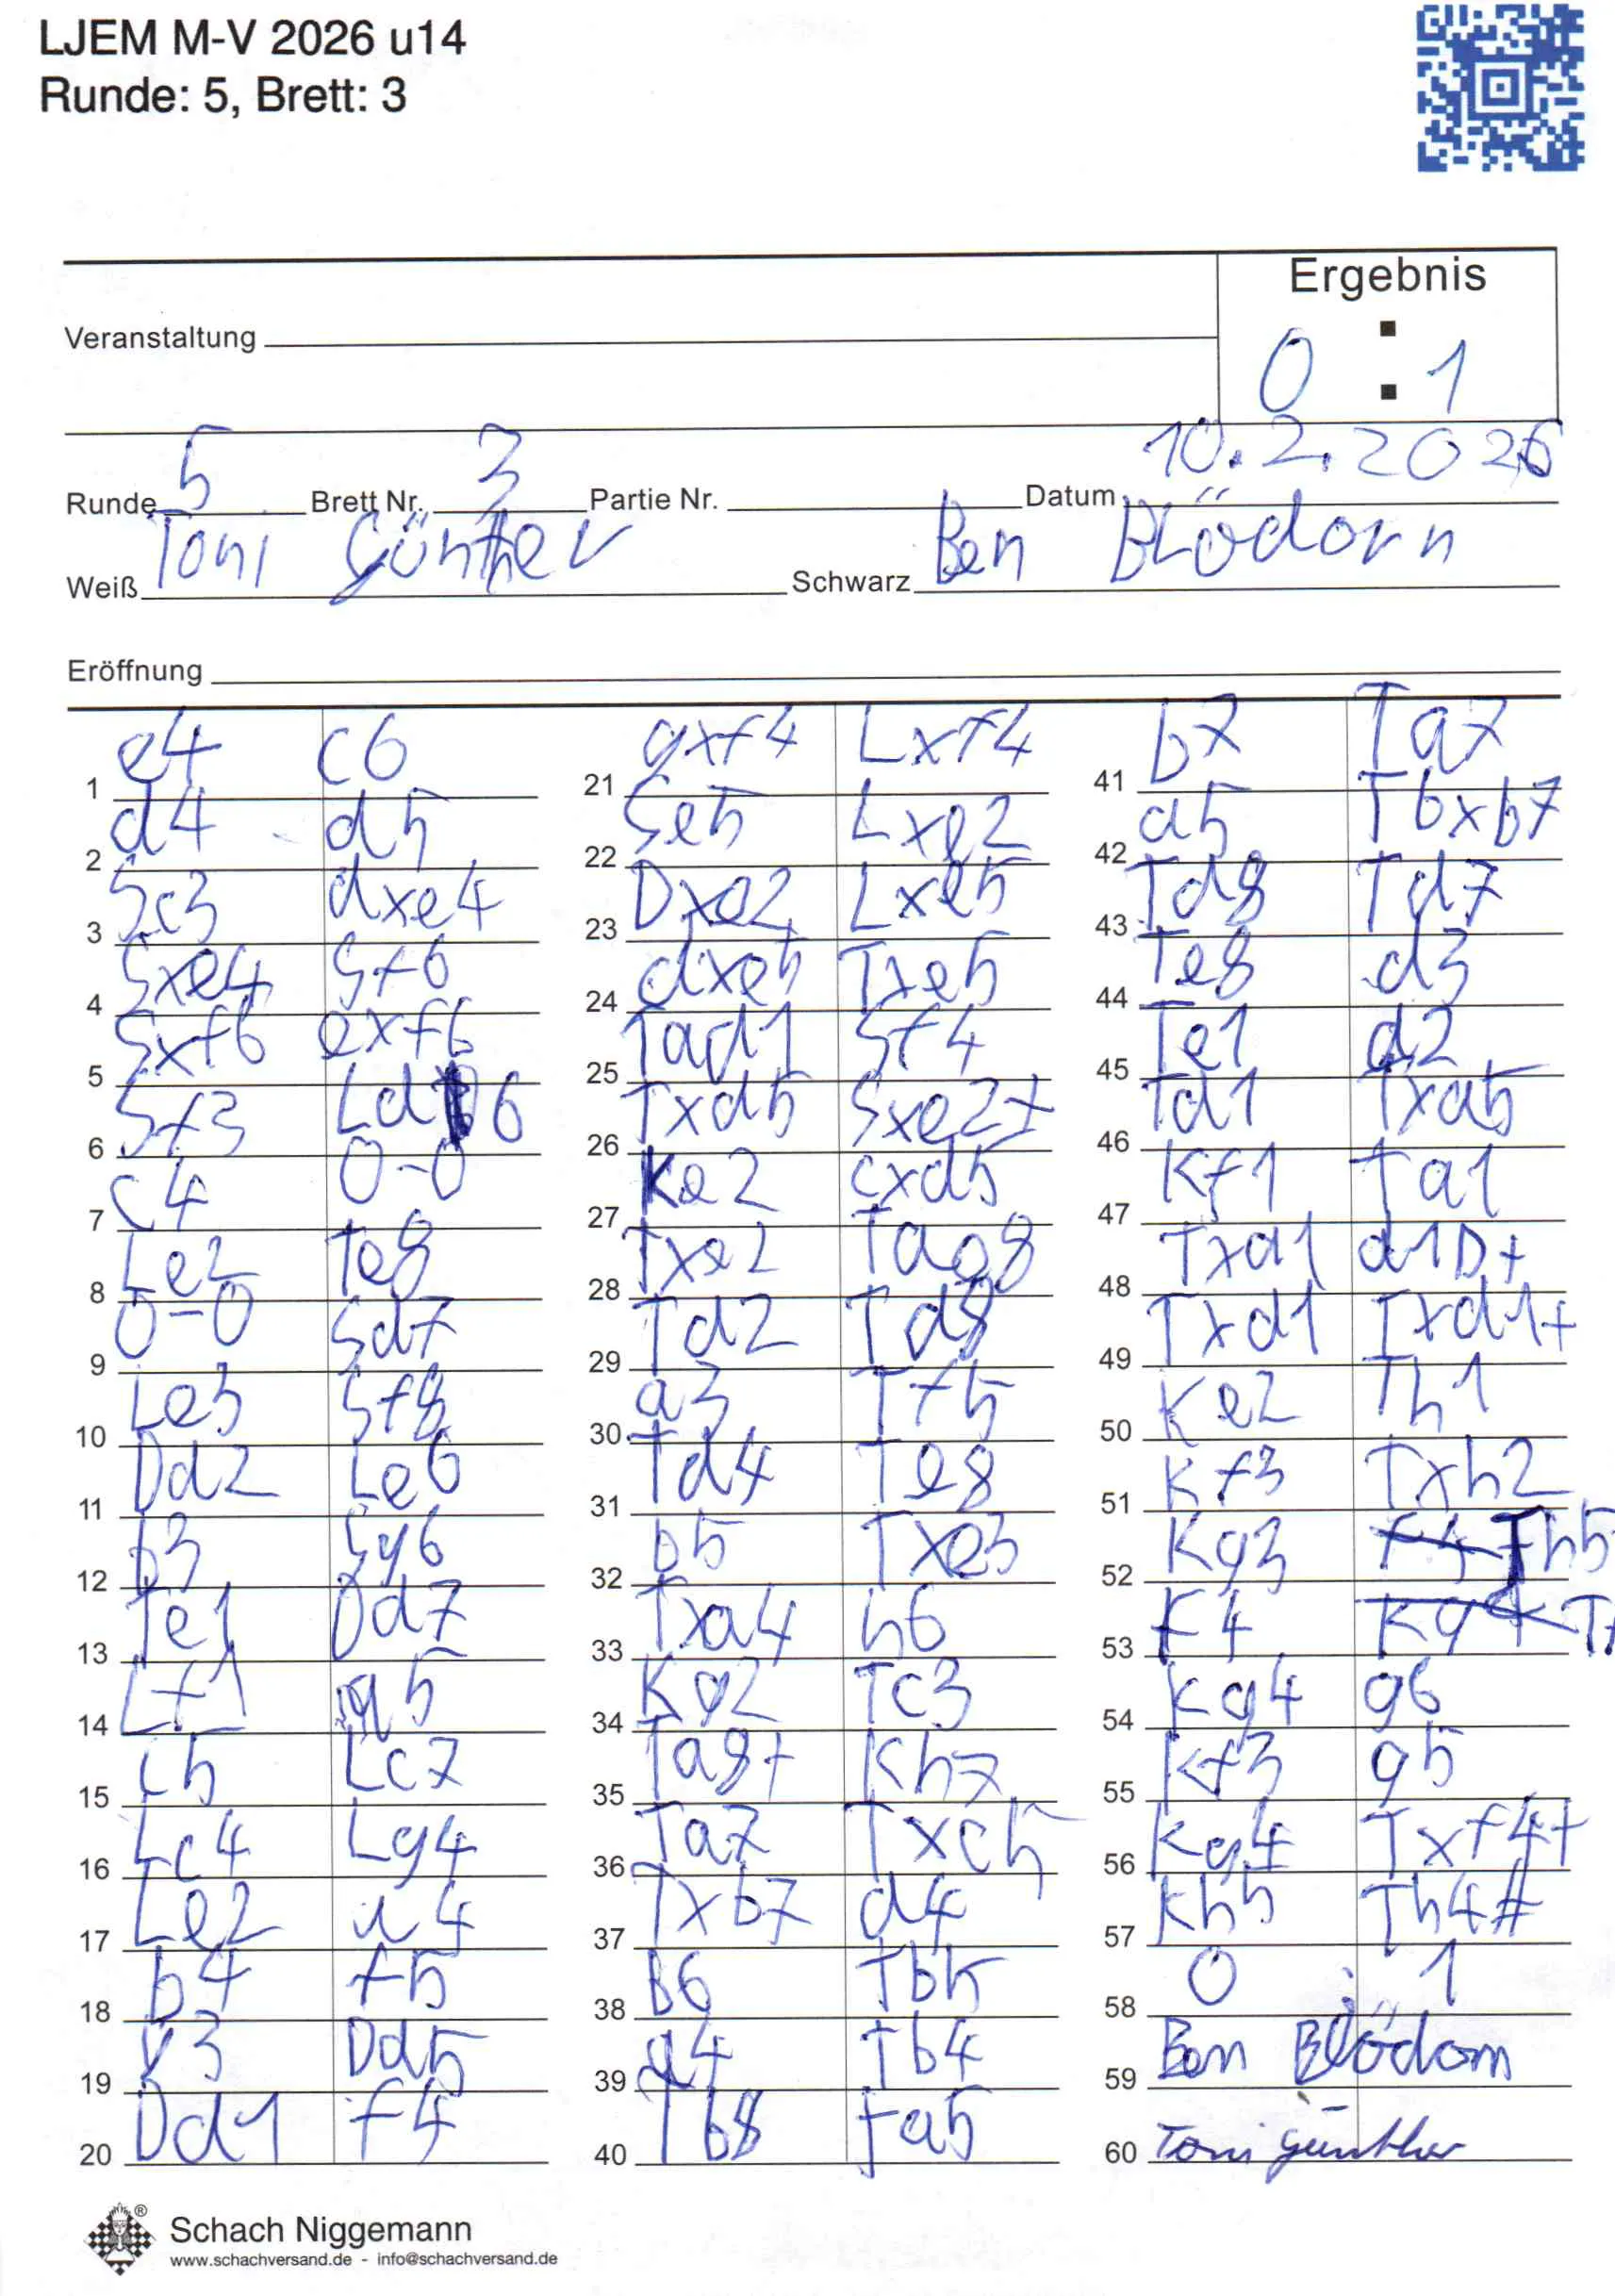 LJEM M-V 2026 u14
Runde: 5, Brett: 3
Ergebnis
0 : 1
Veranstaltung
Runde 5 Brett Nr. 3 Partie Nr. Datum 10.2.2026
Weiß Toni Günther Schwarz Ben Blödorn
Eröffnung
1 e4 c6
2 d4 d5
3 Sc3 dxe4
4 Sxe4 Sf6
5 Sxf6 exf6
6 Sf3 Ld6
7 c4 0-0
8 Le2 Te8
9 0-0 Sd7
10 Le3 Sf8
11 Dd2 Le6
12 b3 Sg6
13 Te1 Dd7
14 Lf1 a5
15 c5 Lc7
16 Lc4 Lg4
17 Le2 a4
18 b4 f5
19 g3 Dd5
20 Dd1 f4
21 gxf4 Lxf4
22 Se5 Lxe2
23 Dxe2 Lxe5
24 dxe5 Txe5
25 Tad1 Sf4
26 Txd5 Sxe2+
27 Ke2 cxd5
28 Txe2 Tae8
29 Td2 Td8
30 a3 Tf5
31 Td4 Te8
32 b5 Txe3
33 Txa4 h6
34 Kg2 Tc3
35 Ta8+ Kh7
36 Ta7 Txc5
37 Txb7 d4
38 B6 Tb5
39 a4 Tb4
40 Tb8 Ta5
41 b7 Ta7
42 a5 Tbxb7
43 Td8 Td7
44 Te8 d3
45 Te1 d2
46 Td1 Txa5
47 Kf1 Ta1
48 Txd1 d1D+
49 Txd1 Txd1+
50 Ke2 Th1
51 Kf3 Txh2
52 Kg3 Th5
53 F4
54 Kg4 g6
55 Kf3 g5
56 Kg4 Txf4+
57 Kh5 Th4#
58 0 : 1
59 Ben Blödorn
60 Toni Günther
Schach Niggemann
www.schachversand.de - info@schachversand.de